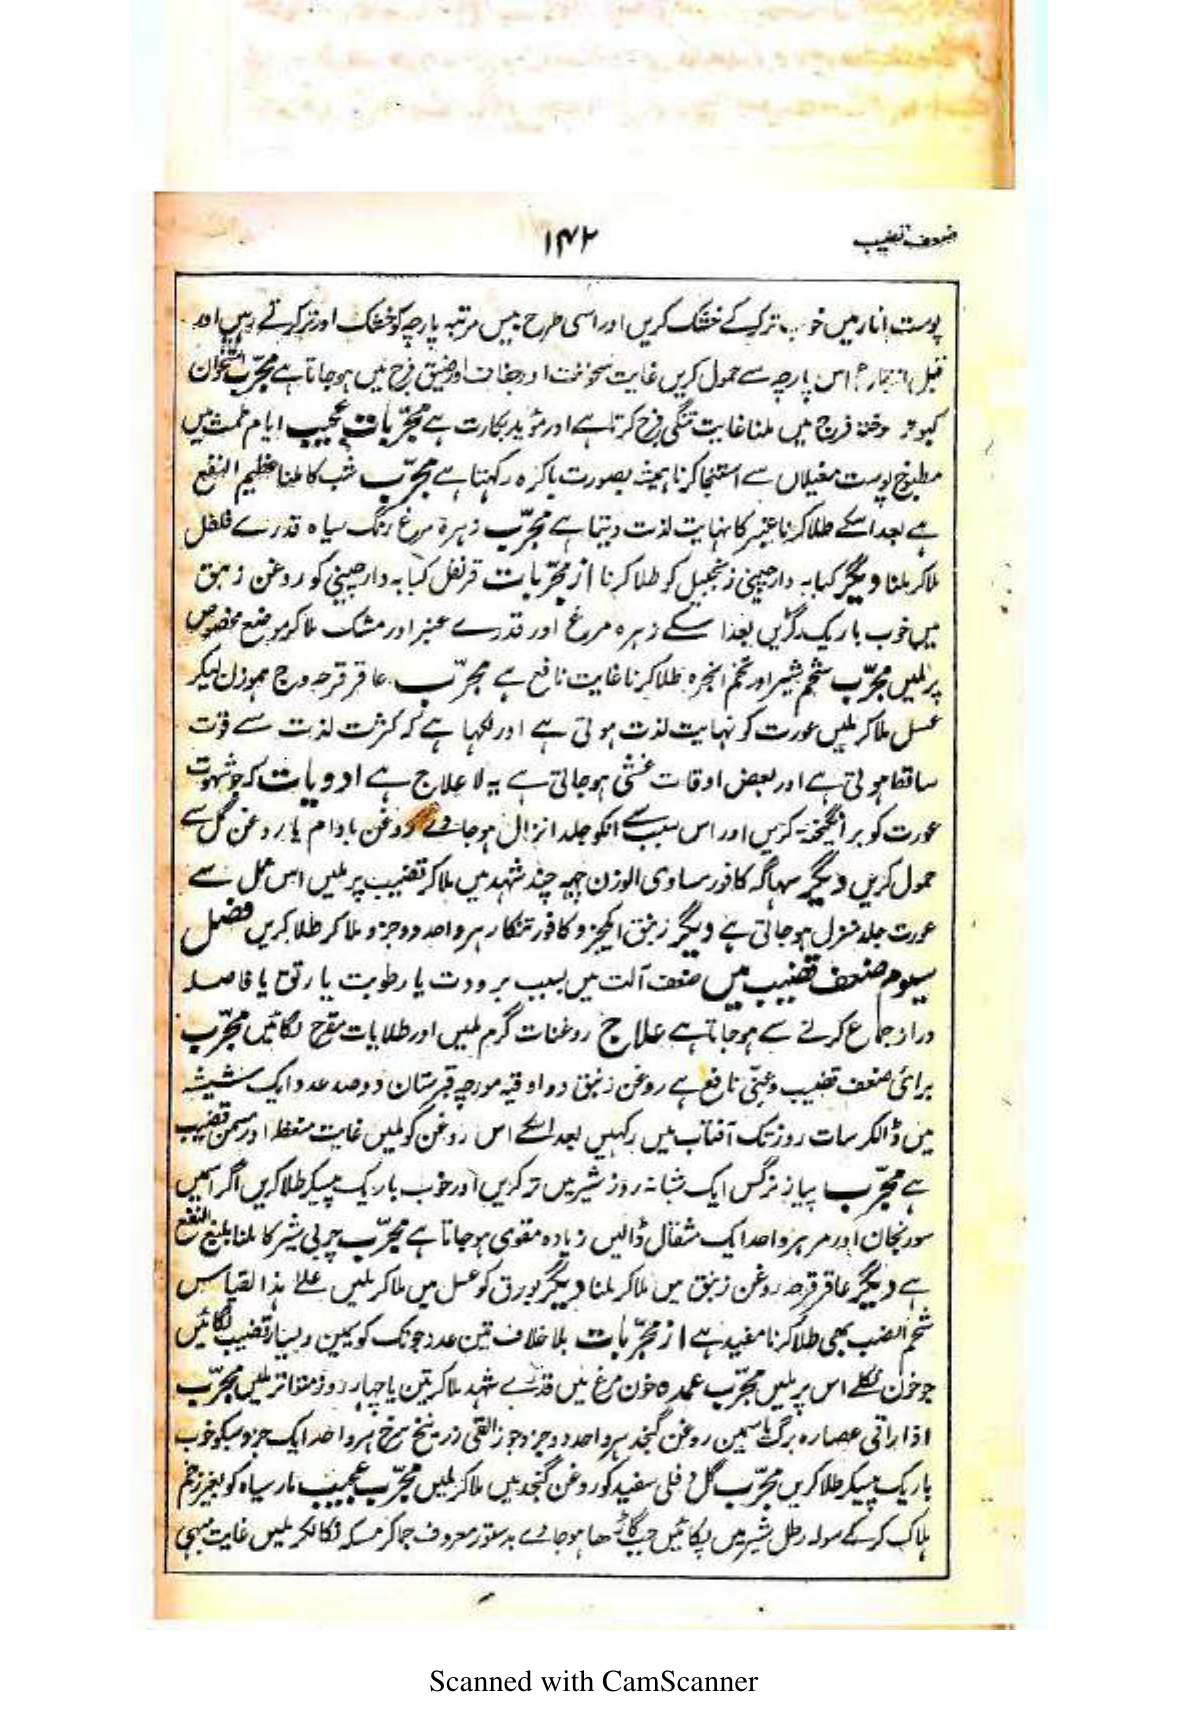 ضعف قضیب
۱۴۲
پوست انار میں خوب تر کرکے خشک کریں اور اسی طرح بیس مرتبہ پارچہ کو خشک اور تر کرتے رہیں اور
قبل اس پارچہ سے حمول کریں غایت سخونت اور جفاف اور ضیق فرج میں ہوجاتا ہے مجرّب استخوان
کبوتر سوختہ فرج میں ملنا غایت تنگی فرج کرتا ہے اور مؤید بکارت ہے مجرّبات عجیب ایام طمث میں
مطبوخ پوست مغیلاں سے استنجا کرنا ہمیشہ بصورت باکرہ رکہتا ہے مجرّب شب کا ملنا عظیم النفع
ہے بعد اسکے طلا کرنا عنبر کا نہایت لذت دیتا ہے مجرّب زہرۂ مرغ رنگ سیاہ قدرے فلفل
ملاکر ملنا دیگر کبابہ دارچینی زنجبیل کو طلا کرنا از مجرّبات قرنفل کبابہ دارچینی کو روغن زنبق
میں خوب باریک رگڑیں بعد اسکے زہرہ مرغ اور قدرے عنبر اور مشک ملاکر موضع مخصوص
پر ملیں مجرّب شحم شیر اور تخم انجرہ طلا کرنا غایت نافع ہے مجرّب عاقرقرحہ وج ہموزن لیکر
عسل ملاکر ملیں عورت کو نہایت لذت ہوتی ہے اور لکہا ہے کہ کثرت لذت سے قوّت
ساقط ہوتی ہے اور بعض اوقات غشی ہوجاتی ہے یہ لا علاج ہے ادویات کہ جو شہوت
عورت کو برانگیختہ کریں اور اس سبب سے انکو جلد انزال ہوجاوے روغن بادام یا روغن گل سے
حمول کریں دیگر سہاگہ کافور مساوی الوزن چھہ چند شہد میں ملاکر قضیب پر ملیں اس عمل سے
عورت جلد منزل ہوجاتی ہے دیگر زنبق ایکجزو کافور تنکار ہرواحد دو جزو ملاکر طلا کریں فصل
سیوم ضعف قضیب میں ضعف آلت میں بسبب برودت یا رطوبت یا رتق یا فاصلہ
دراز جماع کرنے سے ہوجاتا ہے علاج روغنات گرم ملیں اور طلایات مقرح لگائیں مجرّب
برائی ضعف قضیب وعنّی نافع ہے روغن زنبق دو اوقیہ مورچہ قبرستان دوصد عدد ایک شیشہ
میں ڈالکر سات روز تک آفتاب میں رکہیں بعد اسکے اس روغن کو ملیں غایت منعظ اور مسمن قضیب
ہے مجرّب پیاز نرگس ایک شبانہ روز شیر میں تر کریں اور خوب باریک پیسکر طلا کریں اگر اسمیں
سورنجان اور مر ہرواحد ایک مثقال ڈالیں زیادہ مقوی ہوجاتا ہے مجرّب چربی شیر کا ملنا بلیغ النفع
ہے دیگر عاقرقرحہ روغن زنبق میں ملاکر ملنا دیگر بورق کو عسل میں ملاکر ملیں علےٰ ہذا القیاس
شحم الضب بھی طلا کرنا مفید ہے از مجرّبات بلا خلاف تین عدد جونک کو یمین ویسار قضیب لگائیں
جو خون نکلے اس پر ملیں مجرّب عمدہ خون مرغ میں قدرے شہد ملاکر تین یا چہار روز متواتر ملیں مجرّب
اذاراقی عصارہ برگ یاسمین روغن کنجد ہرواحد دو جزو جوزالقی زرنیخ سرخ ہرواحد ایک جزو سبکو خوب
باریک پیسکر طلا کریں مجرّب گل سفید کو روغن کنجد میں ملاکر ملیں مجرّب عجیب مار سیاہ کو بغیر زخم
ہلاک کرکے سولہ رطل شیر میں پکائیں جب گاڑھا ہوجاوے بدستور معروف جماکر مسکہ نکالکر ملیں غایت مبہی
Scanned with CamScanner